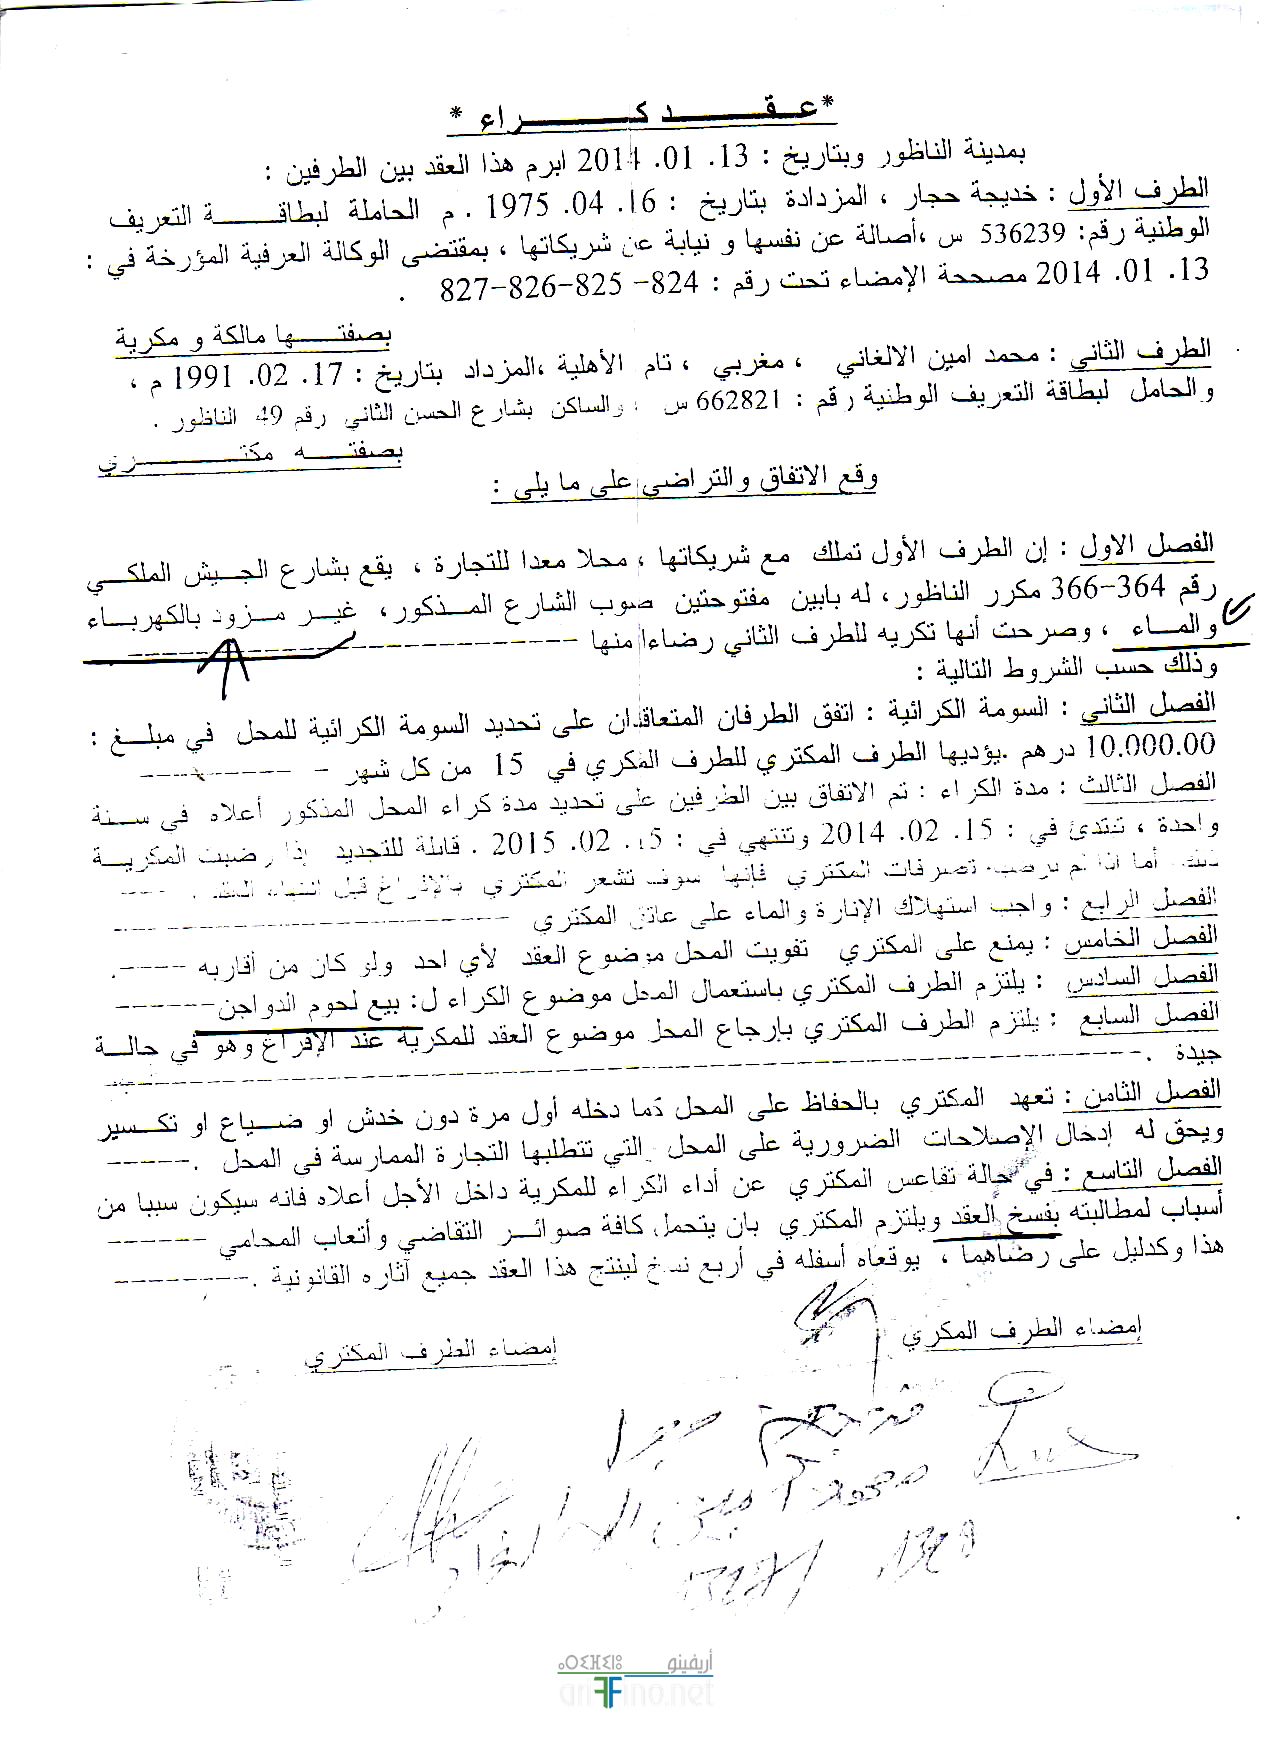 *عقد كراء *
بمدينة الناظور وبتاريخ : 13 .01 .2014 ابرم هذا العقد بين الطرفين :
الطرف الأول : خديجة حجار ، المزدادة بتاريخ : 16 .04 .1975 . م الحاملة لبطاقة التعريف
الوطنية رقم: 536239 س ،أصالة عن نفسها و نيابة عن شريكاتها ، بمقتضى الوكالة العرفية المؤرخة في :
13 .01 .2014 مصححة الإمضاء تحت رقم : 824-825-826-827 .
بصفتها مالكة و مكرية
الطرف الثاني : محمد امين الالغاني ، مغربي ، تام الأهلية ،المزداد بتاريخ : 17 .02 .1991 م ،
والحامل لبطاقة التعريف الوطنية رقم : 662821 س ، والساكن بشارع الحسن الثاني رقم 49 الناظور .
بصفته مكتري
وقع الاتفاق والتراضي على ما يلي :
الفصل الاول : إن الطرف الأول تملك مع شريكاتها ، محلا معدا للتجارة ، يقع بشارع الجيش الملكي
رقم 364-366 مكرر الناظور، له بابين مفتوحتين صوب الشارع المذكور، غير مزود بالكهرباء
والماء ، وصرحت أنها تكريه للطرف الثاني رضاءا منها -------------------------
وذلك حسب الشروط التالية :
الفصل الثاني : السومة الكرائية : اتفق الطرفان المتعاقدان على تحديد السومة الكرائية للمحل في مبلغ :
10.000.00 درهم .يؤديها الطرف المكتري للطرف المكري في 15 من كل شهر - ---------
الفصل الثالث : مدة الكراء : تم الاتفاق بين الطرفين على تحديد مدة كراء المحل المذكور أعلاه في سنة
واحدة ، تبتدئ في : 15 .02 .2014 وتنتهي في : 15 .02 .2015 . قابلة للتجديد إذا رضيت المكرية
أما اذا لم تصرفات المكتري فإنها سوف تشعر المكتري بالإفراغ قبل انتهاء . -----
الفصل الرابع : واجب استهلاك الإنارة والماء على عاتق المكتري ----------------------
الفصل الخامس : يمنع على المكتري تفويت المحل موضوع العقد لأي احد ولو كان من أقاربه -----.
الفصل السادس : يلتزم الطرف المكتري باستعمال المحل موضوع الكراء ل: بيع لحوم الدواجن-------
الفصل السابع : يلتزم الطرف المكتري بإرجاع المحل موضوع العقد للمكرية عند الإفراغ وهو في حالة
جيدة .------------------------------------------------------------
الفصل الثامن : تعهد المكتري بالحفاظ على المحل كما دخله أول مرة دون خدش او ضياع او تكسير
ويحق له إدخال الإصلاحات الضرورية على المحل التي تتطلبها التجارة الممارسة في المحل .------
الفصل التاسع : في حالة تقاعس المكتري عن أداء الكراء للمكرية داخل الأجل أعلاه فانه سيكون سببا من
أسباب لمطالبته بفسخ العقد ويلتزم المكتري بان يتحمل كافة صوائر التقاضي وأتعاب المحامي -------
هذا وكدليل على رضاهما ، يوقعاه أسفله في أربع نسخ لينتج هذا العقد جميع آثاره القانونية .---------
إمضاء الطرف المكري
إمضاء الطرف المكتري
محمد امين
أريفينو ⴰⵔⵉⴼⵉⵏⵓ
ariFFino.net